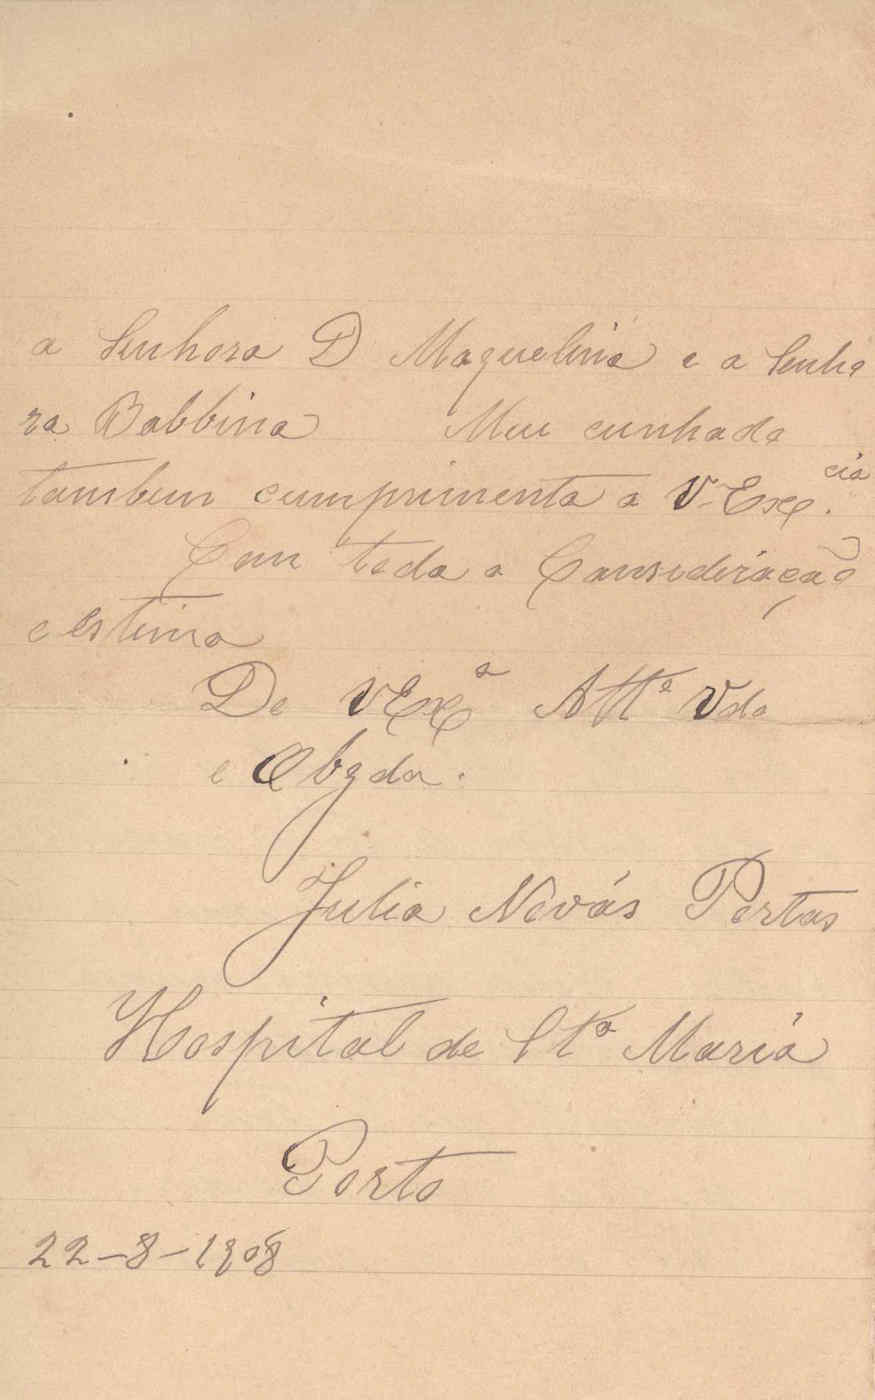 a Senhora D Maquelina e a Senho
ra Babbina Meu cunhado
tambem cumprimenta a V. Exe.cia
Com toda a Consideração
e estima
De V Exe.a Att.a Vda
e Obgda.
Julia Nevás Portas
Hospital de Sta Maria
Porto
22-8-1908